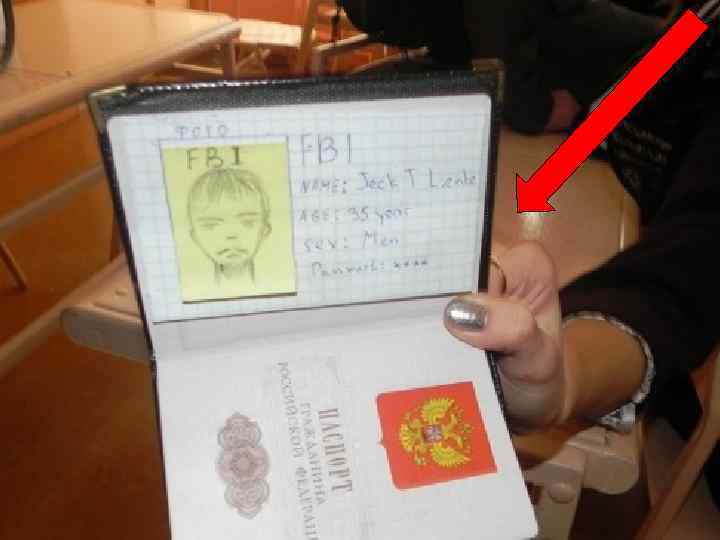 FOTO
FBI
FBI
NAME: Jeck T
AGE: 35 year
sex: Men
Password: ****
ПАСПОРТ
ГРАЖДАНИНА
РОССИЙСКОЙ ФЕДЕРАЦИИ